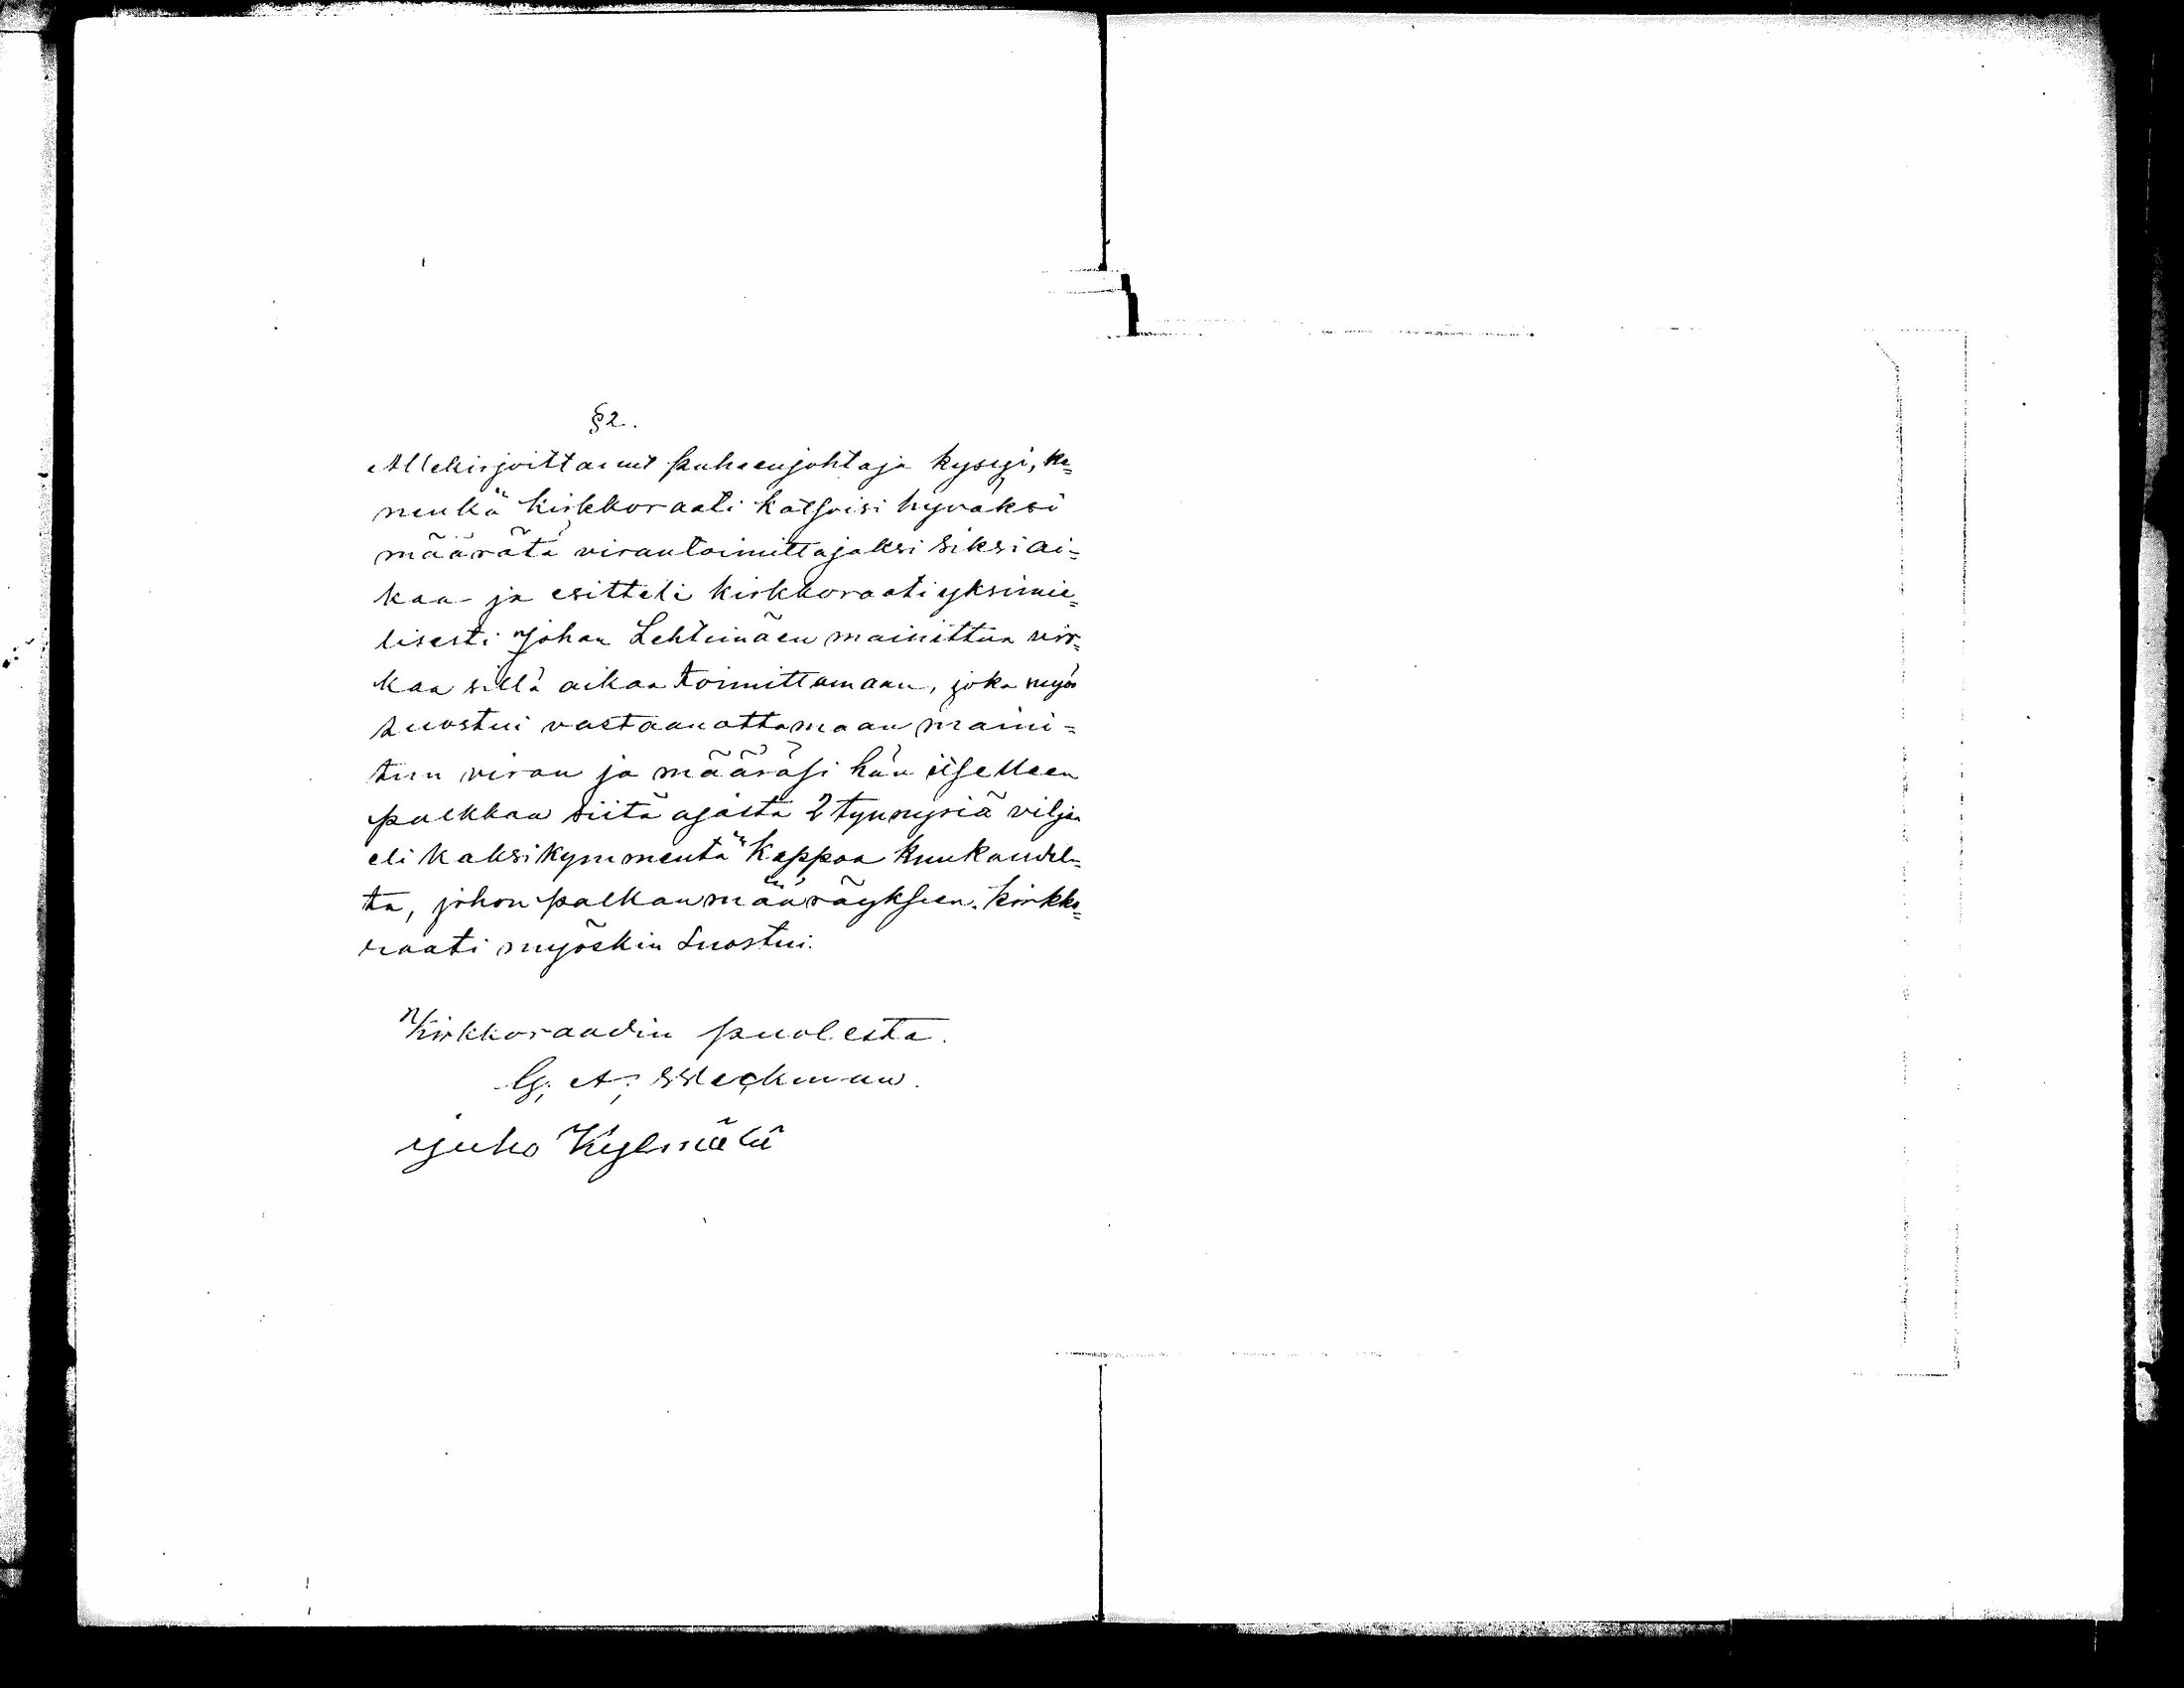 § 2.
Allekirjoittanut puheenjohtaja kysyi, ke=
nenkä kirkkoraati katsoisi hyväksi
määrätä virantoimittajaksi siksi ai=
kaa ja esitteli kirkkoraati yksimie=
lisesti Johan Lehtimäen mainittua vir=
kaa sillä aikaa toimittamaan, joka myös
suostui vastaanottamaan maini=
tun viran ja määräsi hän itselleen
palkkaa siitä ajasta 2 tynnyriä viljaa
eli kaksikymmentä kappaa kuukaudel=
ta, johon palkanmääräykseen kirkko=
raati myöskin suostui.
Kirkkoraadin puolesta.
G. A. Weckman.
Juho Kylmälä